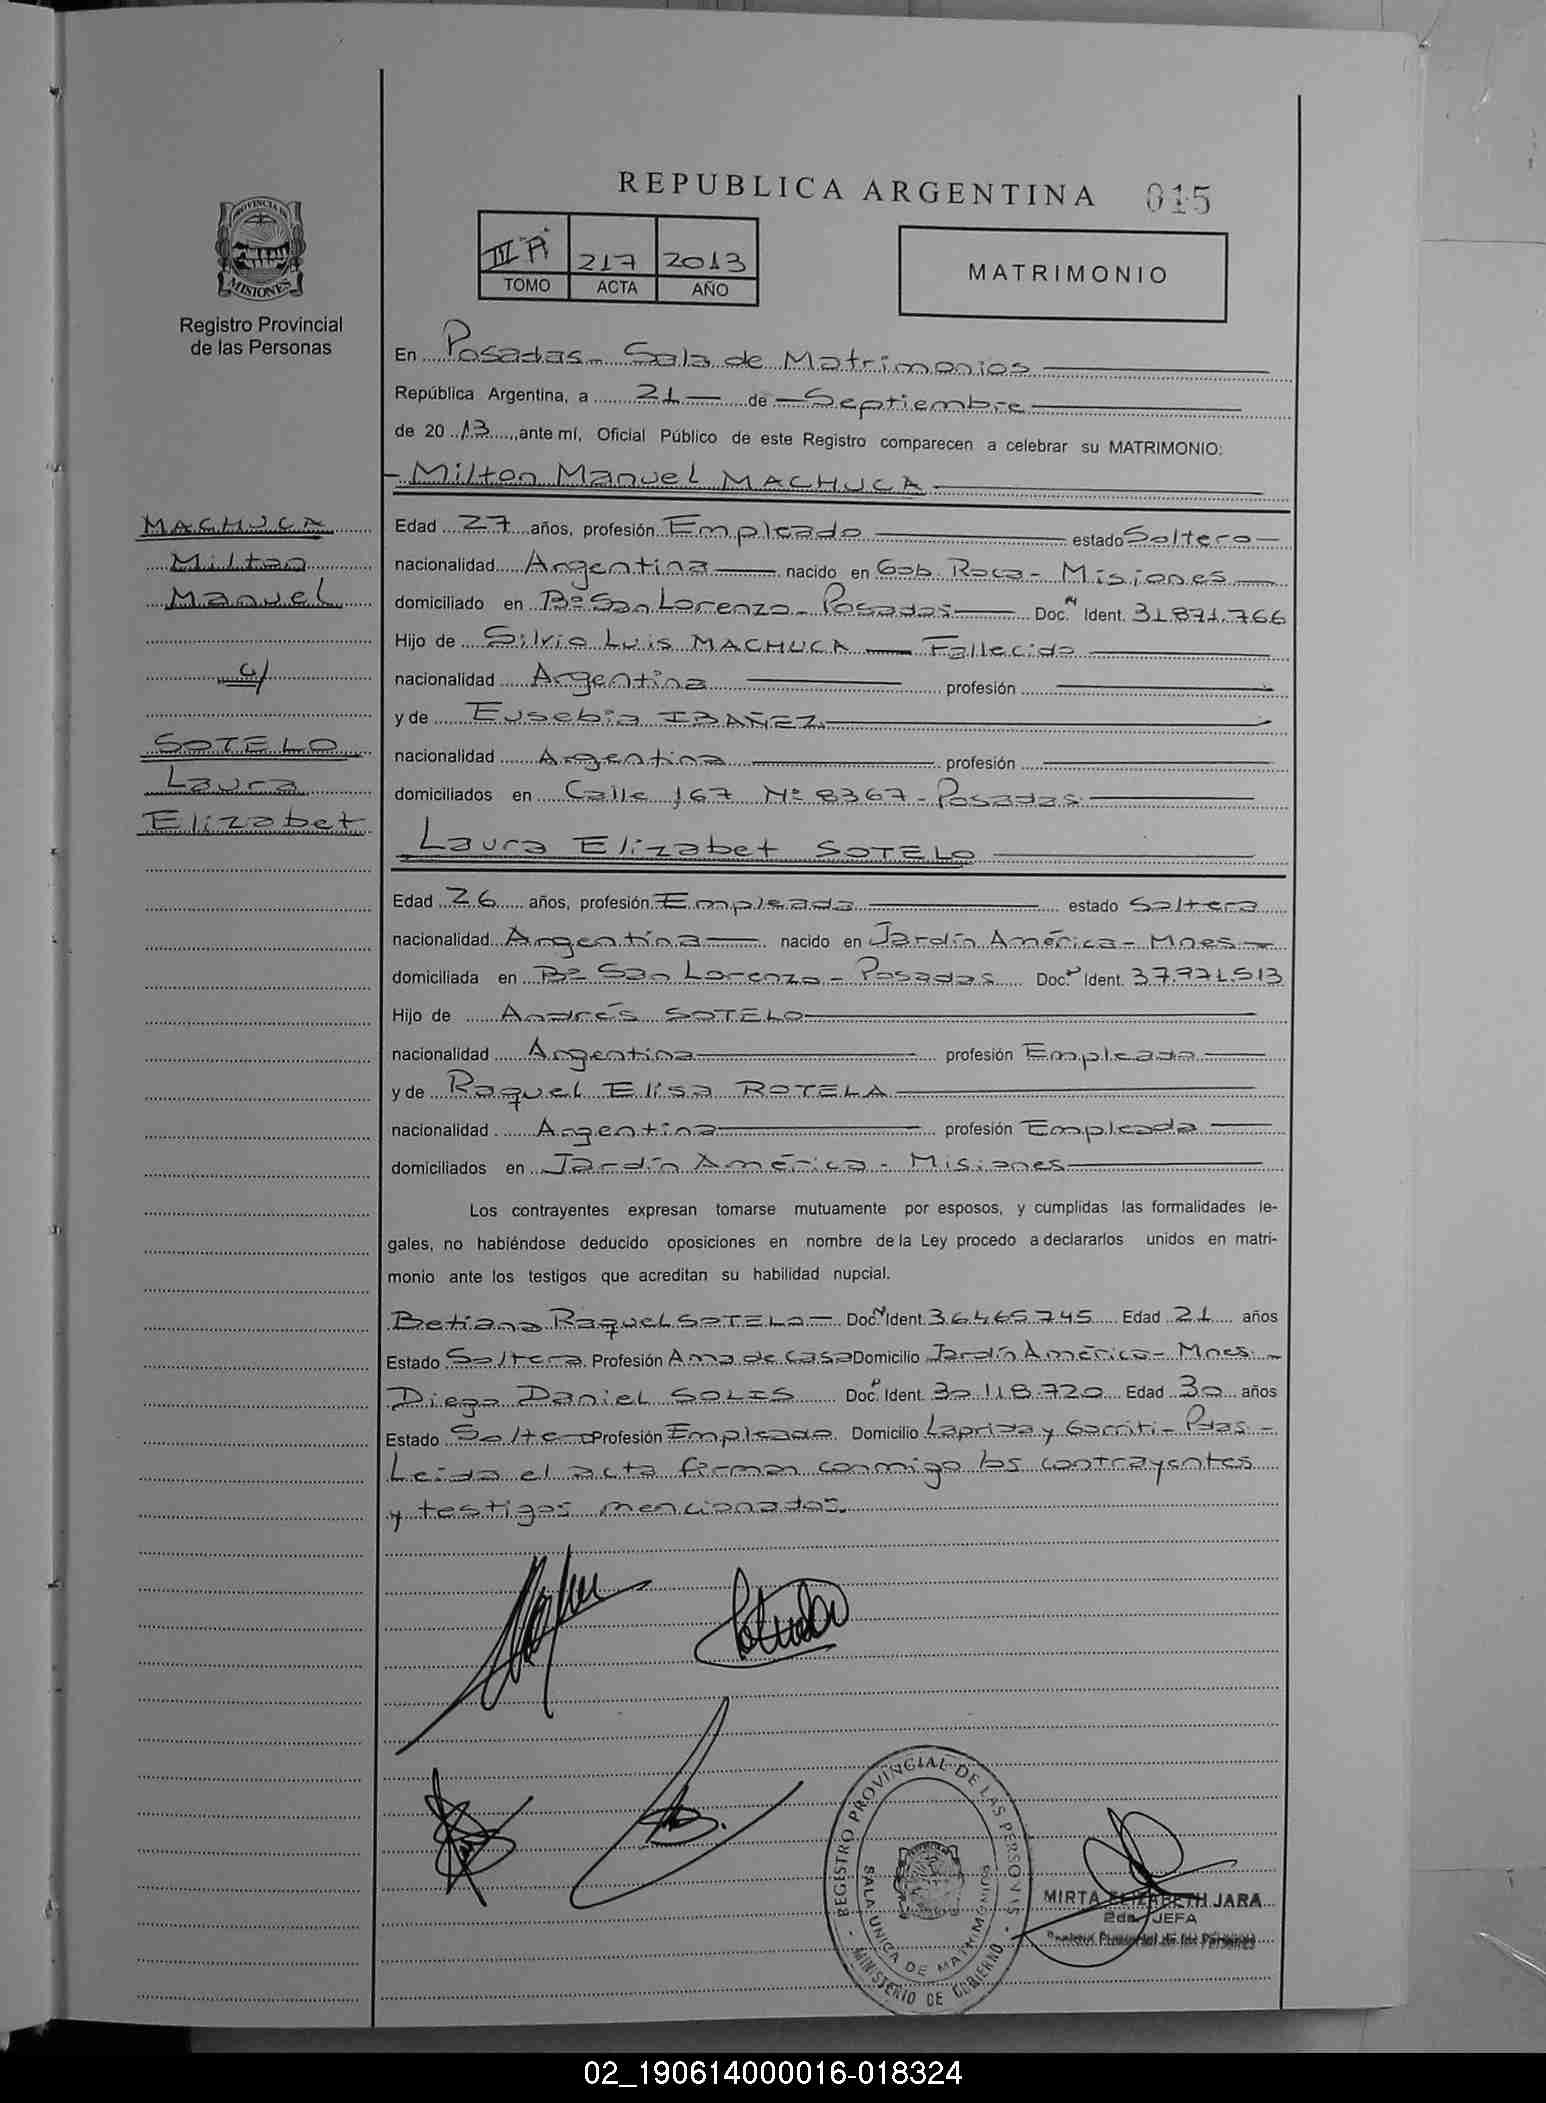 REPUBLICA ARGENTINA 015
PROVINCIA DE
MISIONES
Registro Provincial
de las Personas
III "A" 217 2013
TOMO ACTA AÑO
MATRIMONIO
En Posadas - Sala de Matrimonios
República Argentina, a 21 de Septiembre
de 2013, ante mí, Oficial Público de este Registro comparecen a celebrar su MATRIMONIO:
Milton Manuel MACHUCA
MACHUCA
Milton
Manuel
c/
SOTELO
Laura
Elizabet
Edad 27 años, profesión Empleado estado Soltero
nacionalidad Argentina nacido en Gob. Roca - Misiones
domiciliado en Bº San Lorenzo - Posadas Doc. N Ident. 31.871.766
Hijo de Silvio Luis MACHUCA Fallecido
nacionalidad Argentina profesión
y de Eusebia IBAÑEZ
nacionalidad Argentina profesión
domiciliados en Calle 167 Nº 8367 - Posadas
Laura Elizabet SOTELO
Edad 26 años, profesión Empleada estado Soltera
nacionalidad Argentina nacido en Jardín América - Mnes
domiciliada en Bº San Lorenzo - Posadas Doc. N Ident. 37.971.513
Hijo de Andrés SOTELO
nacionalidad Argentina profesión Empleado
y de Raquel Elisa ROTELA
nacionalidad Argentina profesión Empleada
domiciliados en Jardín América - Misiones
Los contrayentes expresan tomarse mutuamente por esposos, y cumplidas las formalidades le-
gales, no habiéndose deducido oposiciones en nombre de la Ley procedo a declararlos unidos en matri-
monio ante los testigos que acreditan su habilidad nupcial.
Betiana Raquel SOTELO Doc. N Ident. 36.465.745 Edad 21 años
Estado Soltera Profesión Ama de casa Domicilio Jardín América - Mnes.
Diego Daniel SOLIS Doc. Ident. 30.118.720 Edad 30 años
Estado Soltero Profesión Empleado Domicilio Laprida y Garriti - Pdas -
Leída el acta firman conmigo los contrayentes
y testigos mencionados.
REGISTRO PROVINCIAL DE LAS PERSONAS
SALA UNICA DE MATRIMONIOS
- MINISTERIO DE GOBIERNO -
MIRTA ELIZABETH JARA
2da. JEFA
Registro Provincial de las Personas
02_190614000016-018324